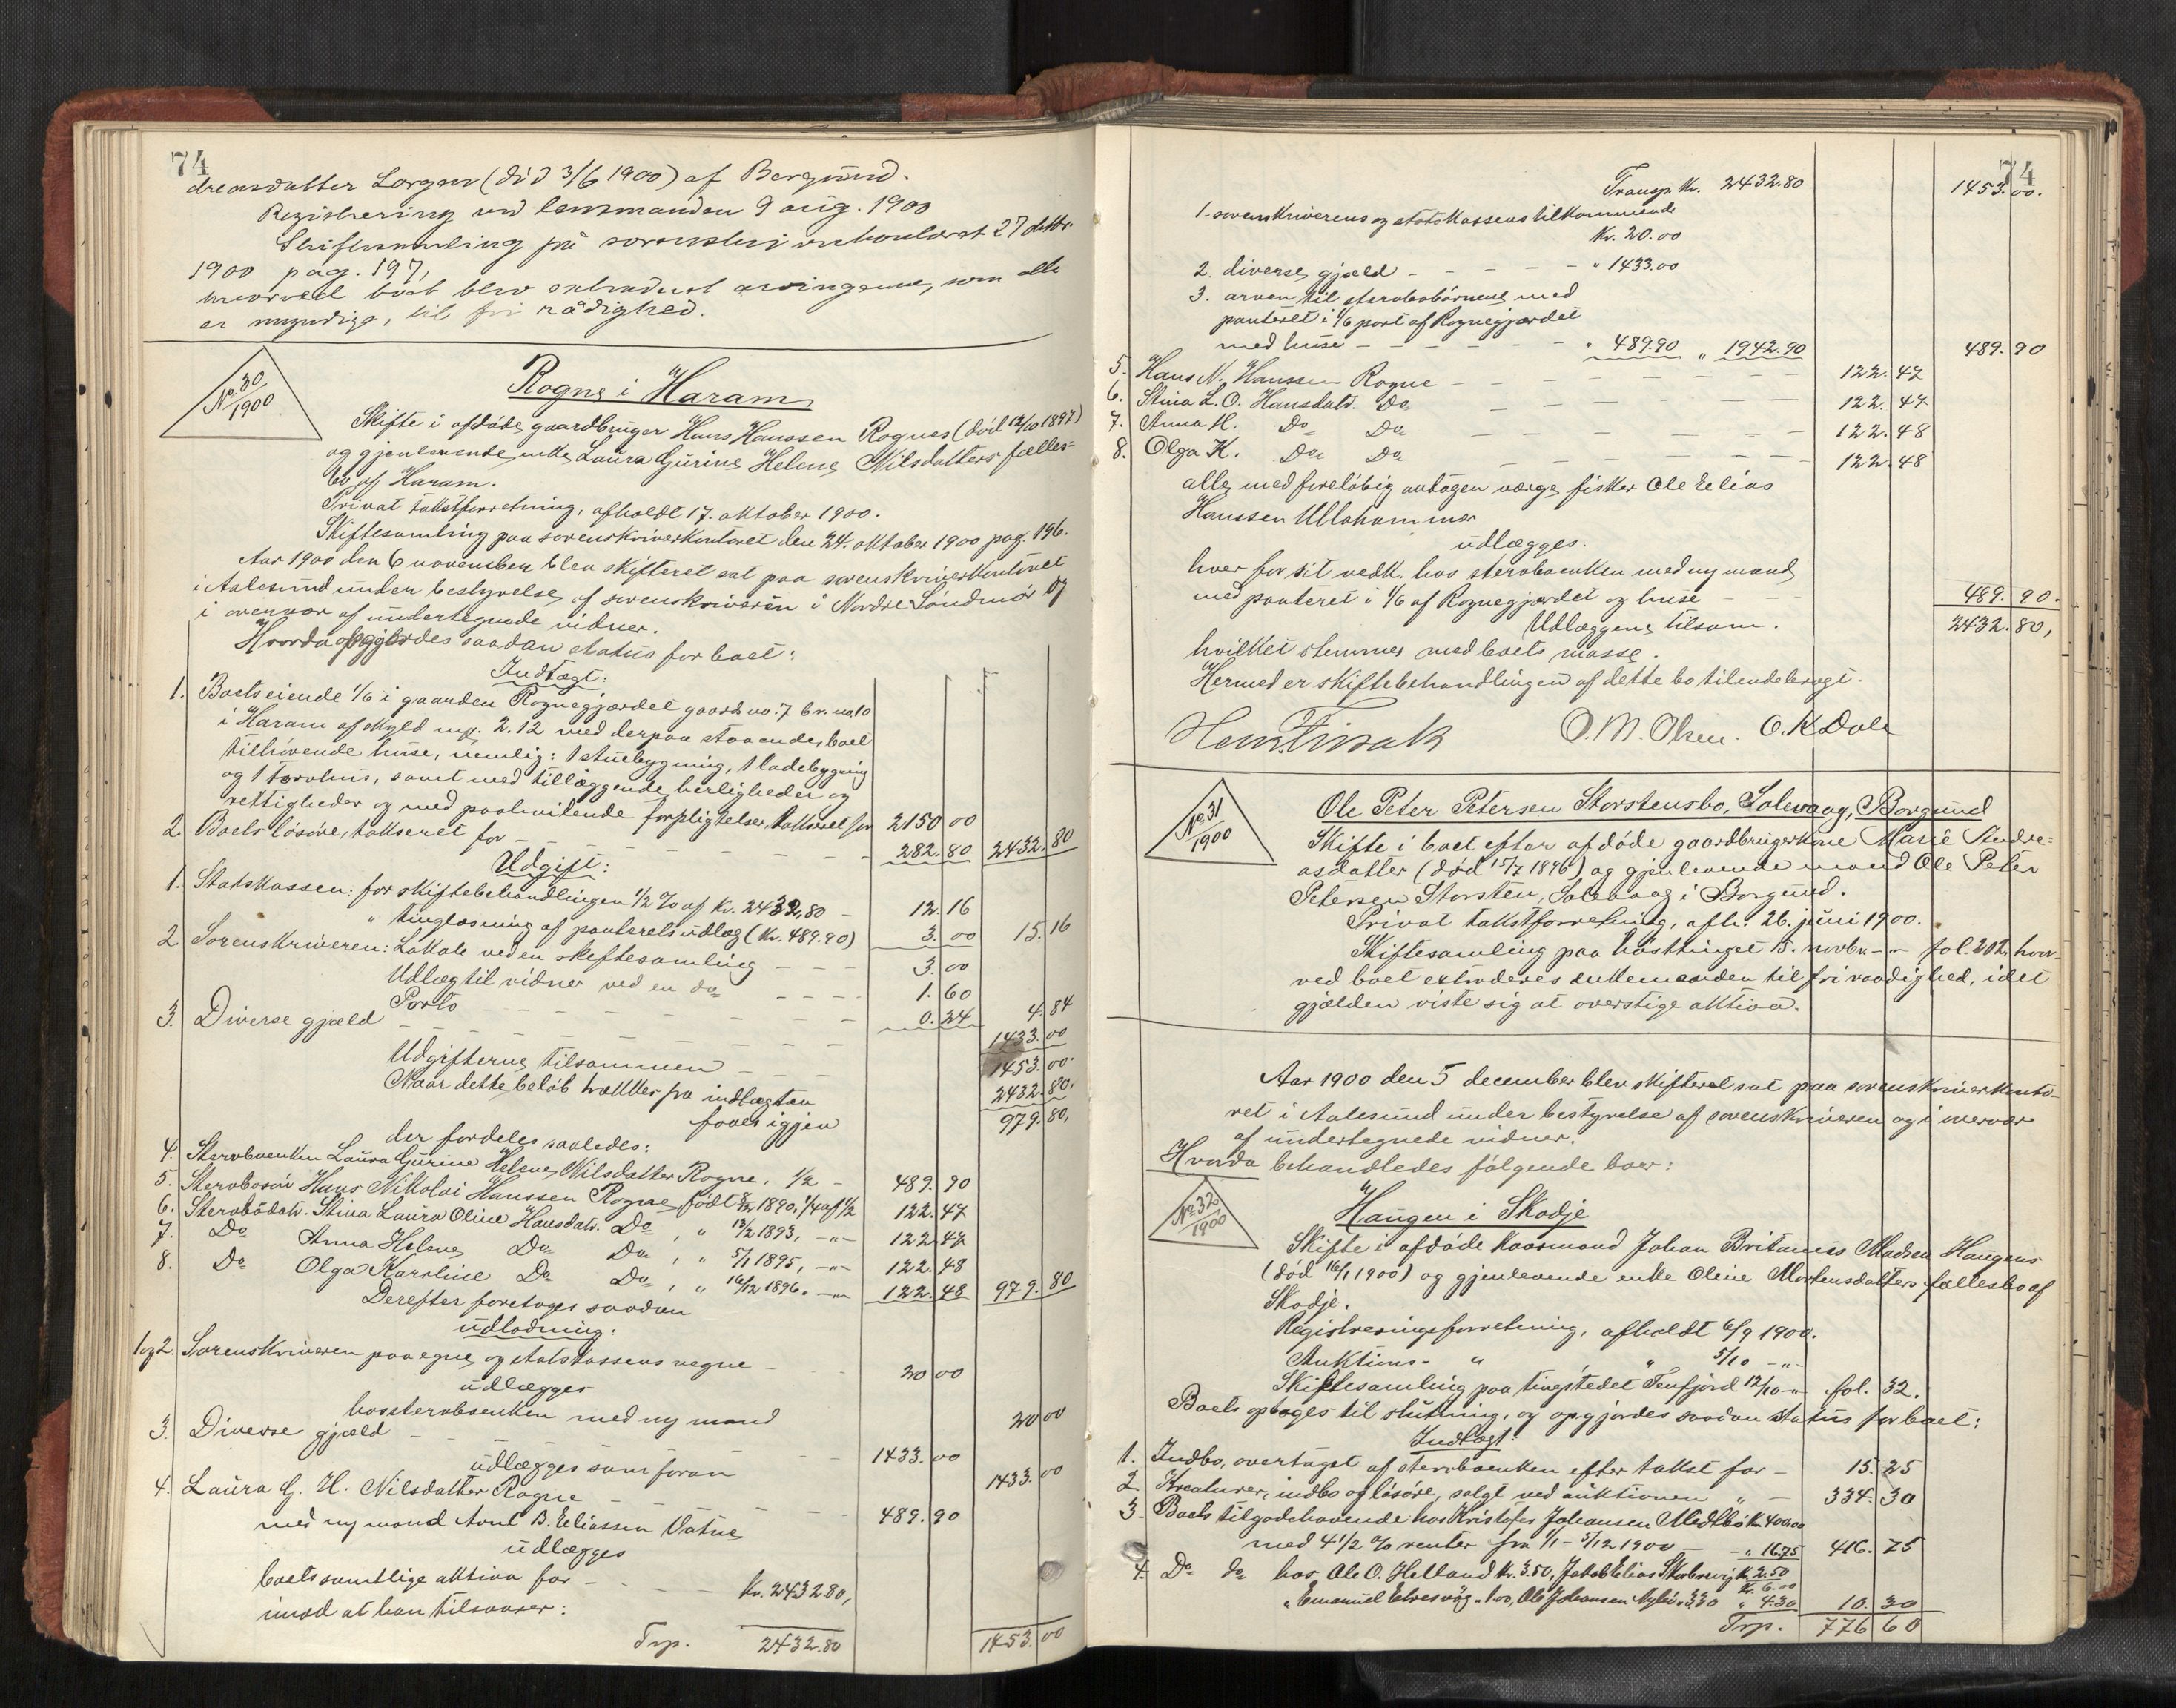 74
dreasdatter Lorgen (död 3/6 1900) af Borgund.
Registrering ved lensmanden 9 aug. 1900
Skiftesamling på sorenskriverkontoret 27 oktbr.
1900 pag. 197,
hvorved boet blev extraderet arvingerne, som alle
er myndige, til fri rådighed.
No 30/1900
Rogne i Haram
Skifte i afdøde gaardbruger Hans Hanssen Rognes (død 12/10 1897)
og gjenlevende enke Laura Gurine Helene Nilsdatters fælles-
bo af Haram.
Privat takstforretning, afholdt 17. oktober 1900.
Skiftesamling paa sorenskriverkontoret den 24. oktober 1900 pag. 196.
Aar 1900 den 6 november blev skifteret sat paa sorenskriverkontoret
i Aalesund under bestyrelse af sorenskriveren i Nordre Søndmør og
i overvær af undertegnede vidner.
Hvorda opgjordes saadan status for boet:
Indtægt:
1. Boets eiende 1/6 i gaarden Rognegjærdet gaards no. 7 br. no. 10
i Haram af skyld mk. 2.12 med derpaa staaende, boet
tilhørende huse, nemlig: 1 stuebygning, 1 ladebygning
og 1 torvhus, samt med tilliggende herligheder og
rettigheder og med paahvilende forpligtelser, takseret for 2150 00
2. Boets løsøre, takseret for - 282. 80 2432. 80
Udgift:
1. Statskassen: for skiftebehandlingen 1/2 % af Kr. 2432,80 - 12. 16
" tinglæsning af panteretsudlæg (Kr. 489.90) 3. 00 15. 16
2 Sorenskriveren: Lokale ved en skiftesamling - - - 3. 00
Udlæg til vidner ved en do - - - - 1. 60
Porto - - - 0. 24 4. 84
3. Diverse gjæld - - - 1433. 00
Udgifterne tilsammen - - - 1453. 00.
Naar dette beløb trækkes fra indtægten 2432. 80.
faaes igjen 979. 80,
der fordeles saaledes:
4. Stervboenken Laura Gurine Helene Nilsdatter Rogne, 1/2 - 489. 90
5. Stervbosøn Hans Nikolai Hanssen Rogne, født 1890, 1/4 af 1/2 122. 47
6. Stervbodatr. Stina Laura Oline Hansdatr. Do, " 12/2 1893, -"- 122. 47
7. Do Anna Helene Do Do, " 5/1 1895, -"- 122. 48
8. Do Olga Karoline Do Do, " 16/12 1896. -"- 122. 48 979. 80
Derefter foretages saadan
udlodning:
1 og 2. Sorenskriveren paa egne og statskassens vegne - 20 00
udlægges
hos stervboenken med ny mand 20 00
3. Diverse gjæld - - - 1433. 00
udlægges som foran 1433. 00
4. Laura G. H. Nilsdatter Rogne - -
med ny mand Arnt B. Eliassen Vatne 489. 90
udlægges
boets samtlige aktiva for - - - Kr. 2432 80,
imod at han tilsvarer:
Trp. 2432.80 1453. 00
74
Transp. Kr. 2432.80 1453. 00.
1. sorenskriverens og statskassens tilkommende
Kr. 20.00
2. diverse gjæld - - - - " 1433.00
3. arven til stervbobørnene med
panteret i 1/6 part af Rognegjærdet
med huse - - - - " 489.90 " 1942.90 489. 90
5. Hans N. Hanssen Rogne - - - 122. 47
6. Stina L. O. Hansdatr. Do - - - 122. 47
7. Anna H. Do Do - - - 122. 48
8. Olga K. Do Do - - - 122. 48
alle med foreløbig antagen værge fisker Ole Elias
Hanssen Ullahammer
udlægges.
hver for sit vedk. hos stervboenken med ny mand
med panteret i 1/6 af Rognegjærdet og huse - - - 489. 90.
Udlæggene tilsam. 2432. 80,
hvilket stemmer med boets masse.
Hermed er skiftebehandlingen af dette bo tilendebragt.
O. M. Olsen. O. K Dale
No 31/1900
Ole Peter Petersen Storstensbo, Solevaag, Borgund
Skifte i boet efter afdøde gaardbrugerkone Marie Andre-
asdatter (død 15/7 1896) og gjenlevende mand Ole Peter
Petersen Storsten, Solevaag i Borgund.
Privat takstforretning, afh. 26. juni 1900.
Skiftesamling paa høsttinget 15. novbr. -"- fol. 20 hvor-
ved boet extraderes enkemanden til fri raadighed, idet
gjælden viste sig at overstige aktiva.
Aar 1900 den 5 december blev skifteret sat paa sorenskriverkonto-
ret i Aalesund under bestyrelse af sorenskriveren og i overvær
af undertegnede vidner.
Hvorda behandledes følgende boer:
No 32/1900
Haugen i Skodje
Skifte i afdøde kaarmand Johan Britanius Madsen Haugens
(død 16/1 1900) og gjenlevende enke Oline Mortensdatters fællesbo af
Skodje.
Registreringsforretning, afholdt 6/9 1900.
Auktions- " " 5/10 -"-
Skiftesamling paa tingstedet Tenfjord 12/10 -"- fol. 32.
Boets optages til slutning, og opgjordes saadan status for boet:
Indtægt:
1. Indbo, overtaget af stervboenken efter takst for - 15. 25
2 Kreaturer, indbo og løsøre, solgt ved auktionen " - 334. 30
3. Boets tilgodehavende hos Kristofer Johansen Medtbø Kr. 400.00
med 4 1/2 % renter fra 1/1 - 5/12 1900 - - " 16.75 416. 75
4. Do do hos Ole O. Helland Kr. 3.50, Jakob Elias Skorbrevig Kr. 2.50
Kr. 6.00
" Emanuel Ehresvåg " 1.00, Ole Johansen Nylid " 3.30 " 4.30 10. 30
Trp. 776 60